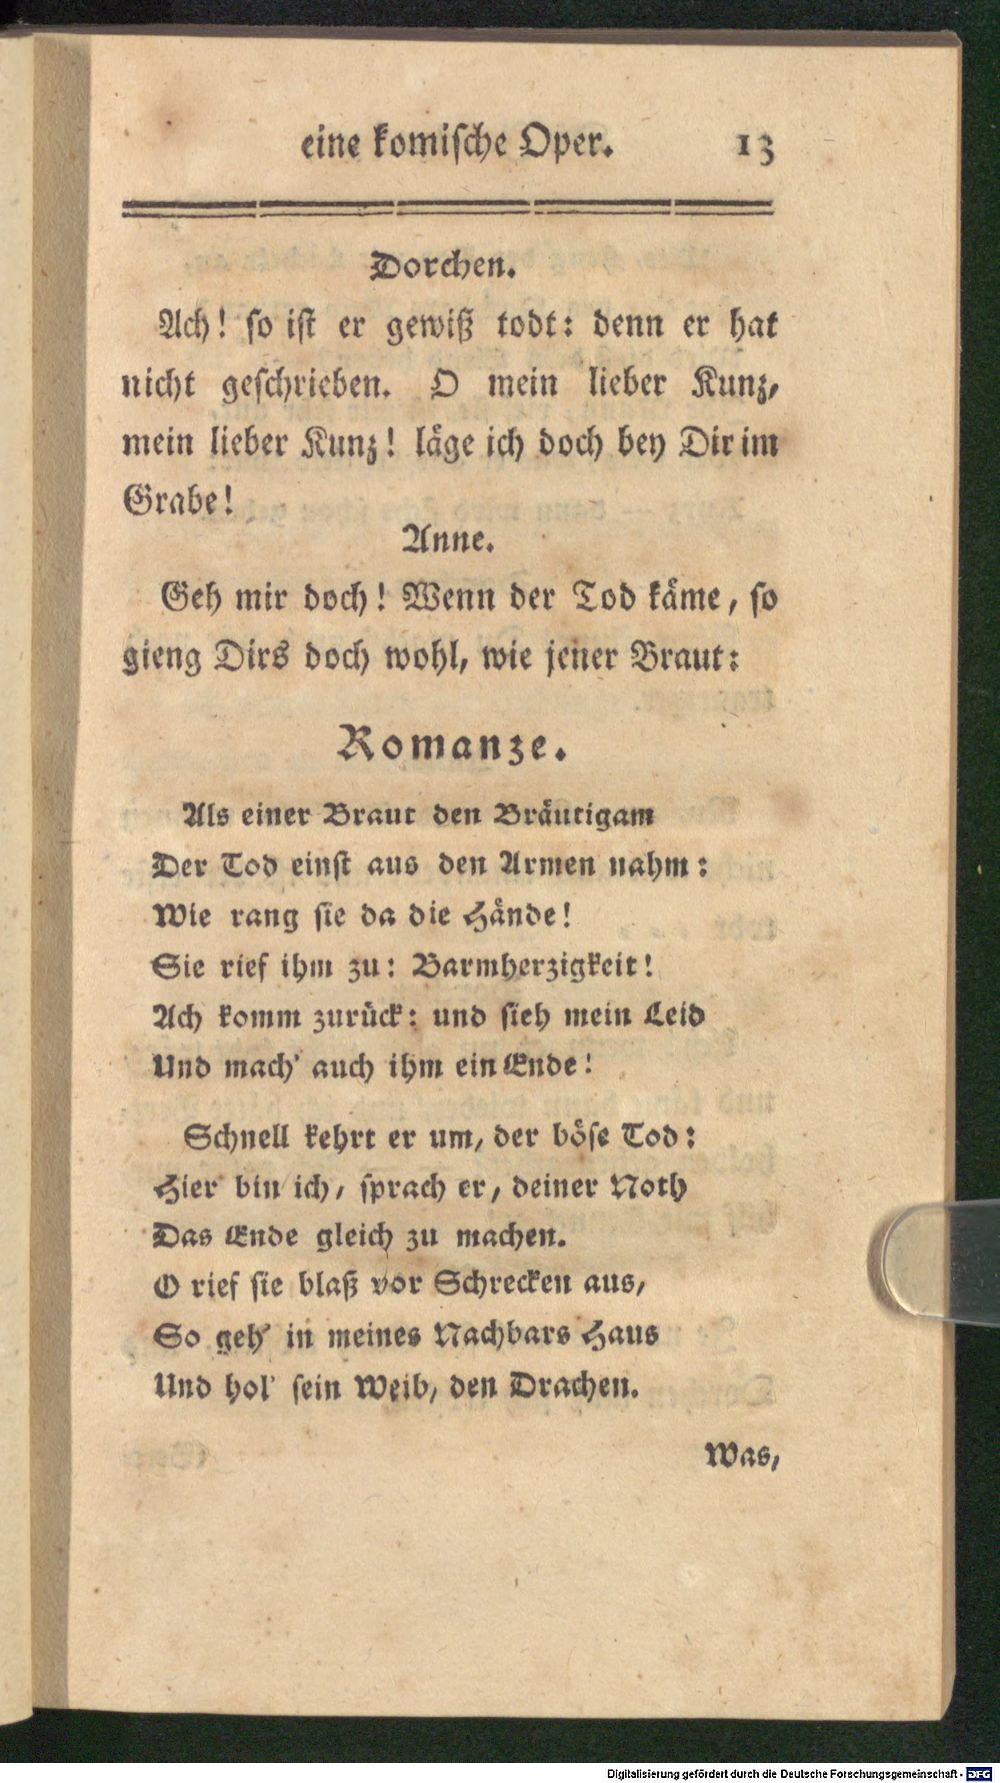 eine komiſche Oper. 13
Dorchen.
Ach! ſo iſt er gewiß todt: denn er hat
nicht geſchrieben. O mein lieber Kunz,
mein lieber Kunz! läge ich doch bey Dir im
Grabe!
Anne.
Geh mir doch! Wenn der Tod käme, ſo
gieng Dirs doch wohl, wie jener Braut:
Romanze.
Als einer Braut den Bräutigam
Der Tod einſt aus den Armen nahm:
Wie rang ſie da die Hände!
Sie rief ihm zu: Barmherzigkeit!
Ach komm zurück: und ſieh mein Leid
Und mach' auch ihm ein Ende!
Schnell kehrt er um, der böſe Tod:
Hier bin ich, ſprach er, deiner Noth
Das Ende gleich zu machen.
O rief ſie blaß vor Schrecken aus,
So geh' in meines Nachbars Haus
Und hol' ſein Weib, den Drachen.
Was,
Digitalisierung gefördert durch die Deutsche Forschungsgemeinschaft - DFG